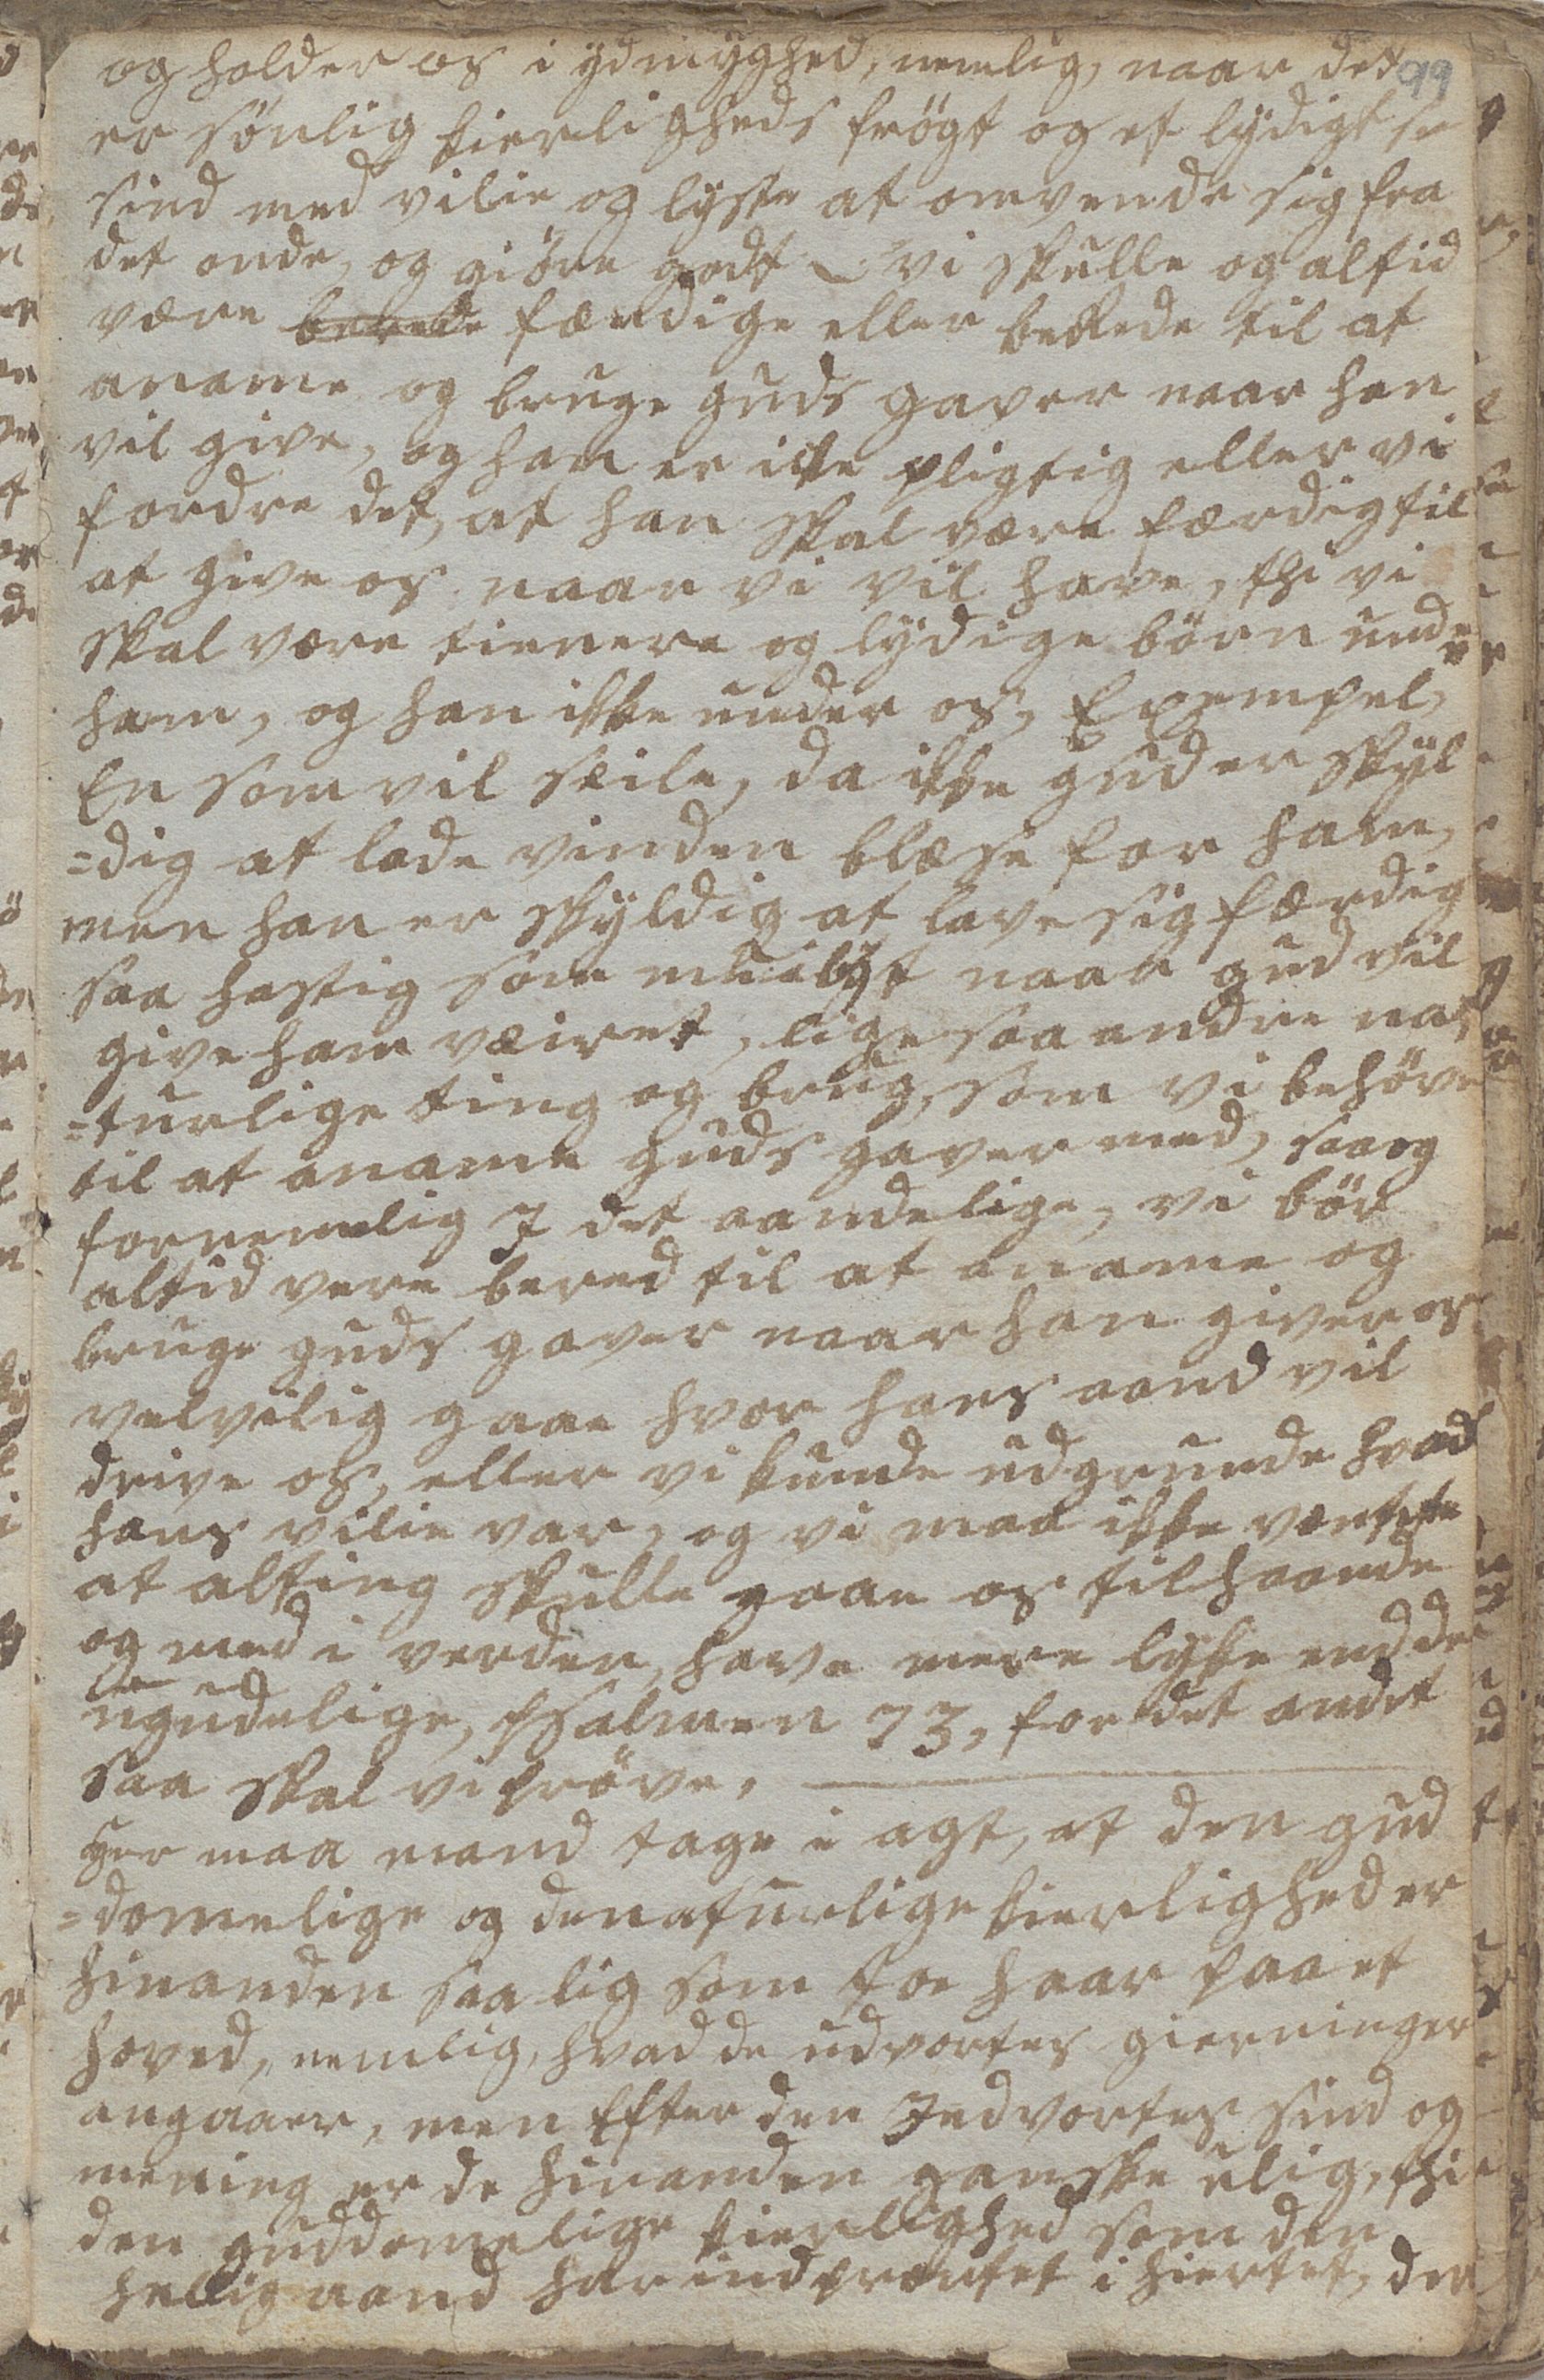 og holder os i ydmyghed, nemlig, naar det
99
er sønlig kierligheds frögt og et lydigt se
sind med vilie og lyste at omvende sig fra
det onde, og giöre godt – vi skulle og altid
være berede færdige eller berede til at
aname og bruge guds gaver naar han
vil give, og han er ikke pligtig eller vi
fordre det, at han skal være færdig til
at give os naar vi vil have, thi vi
skal være tienere og lydige börn under
ham, og han ikke under os, Exempel,
En som vil seile, da ikke gud er skyl
=dig at lade vinden blæse for ham,
men han er skyldig at lave sig færdig
saa hastig som mueligt naar gud vil
give ham væiret, lige saa andre nat
=turlige ting og brug, som vi behöver
til at aname guds gaver med, saa og
fornemelig I det aandelige, vi bör
altid vere bered til at aname og
bruge guds gaver naar han giver os
velvilig gaae hvor hans aand vil
drive os, eller vi kunde udgrunde hvad
hans vilie var, og vi maa ikke ventete
at alting skulle gaae os tilhaande
og med i verden, have mere lyke end de
ugudelige, Psalmen 73, for det andet
saa skal vi pröve,
her maa mand tage i agt, at den gud
=domelige og denaturlige kierlighed er
hinanden saa lig som toe haar paa et
hoved, nemlig, hvad de udvortes gierninger
angaaer, men Efter den Indvortes sind og
mening er de hinanden ganske ulig, thi
den guddomelige kierlighed som den
hellig aand har indprentet i hiertet, den